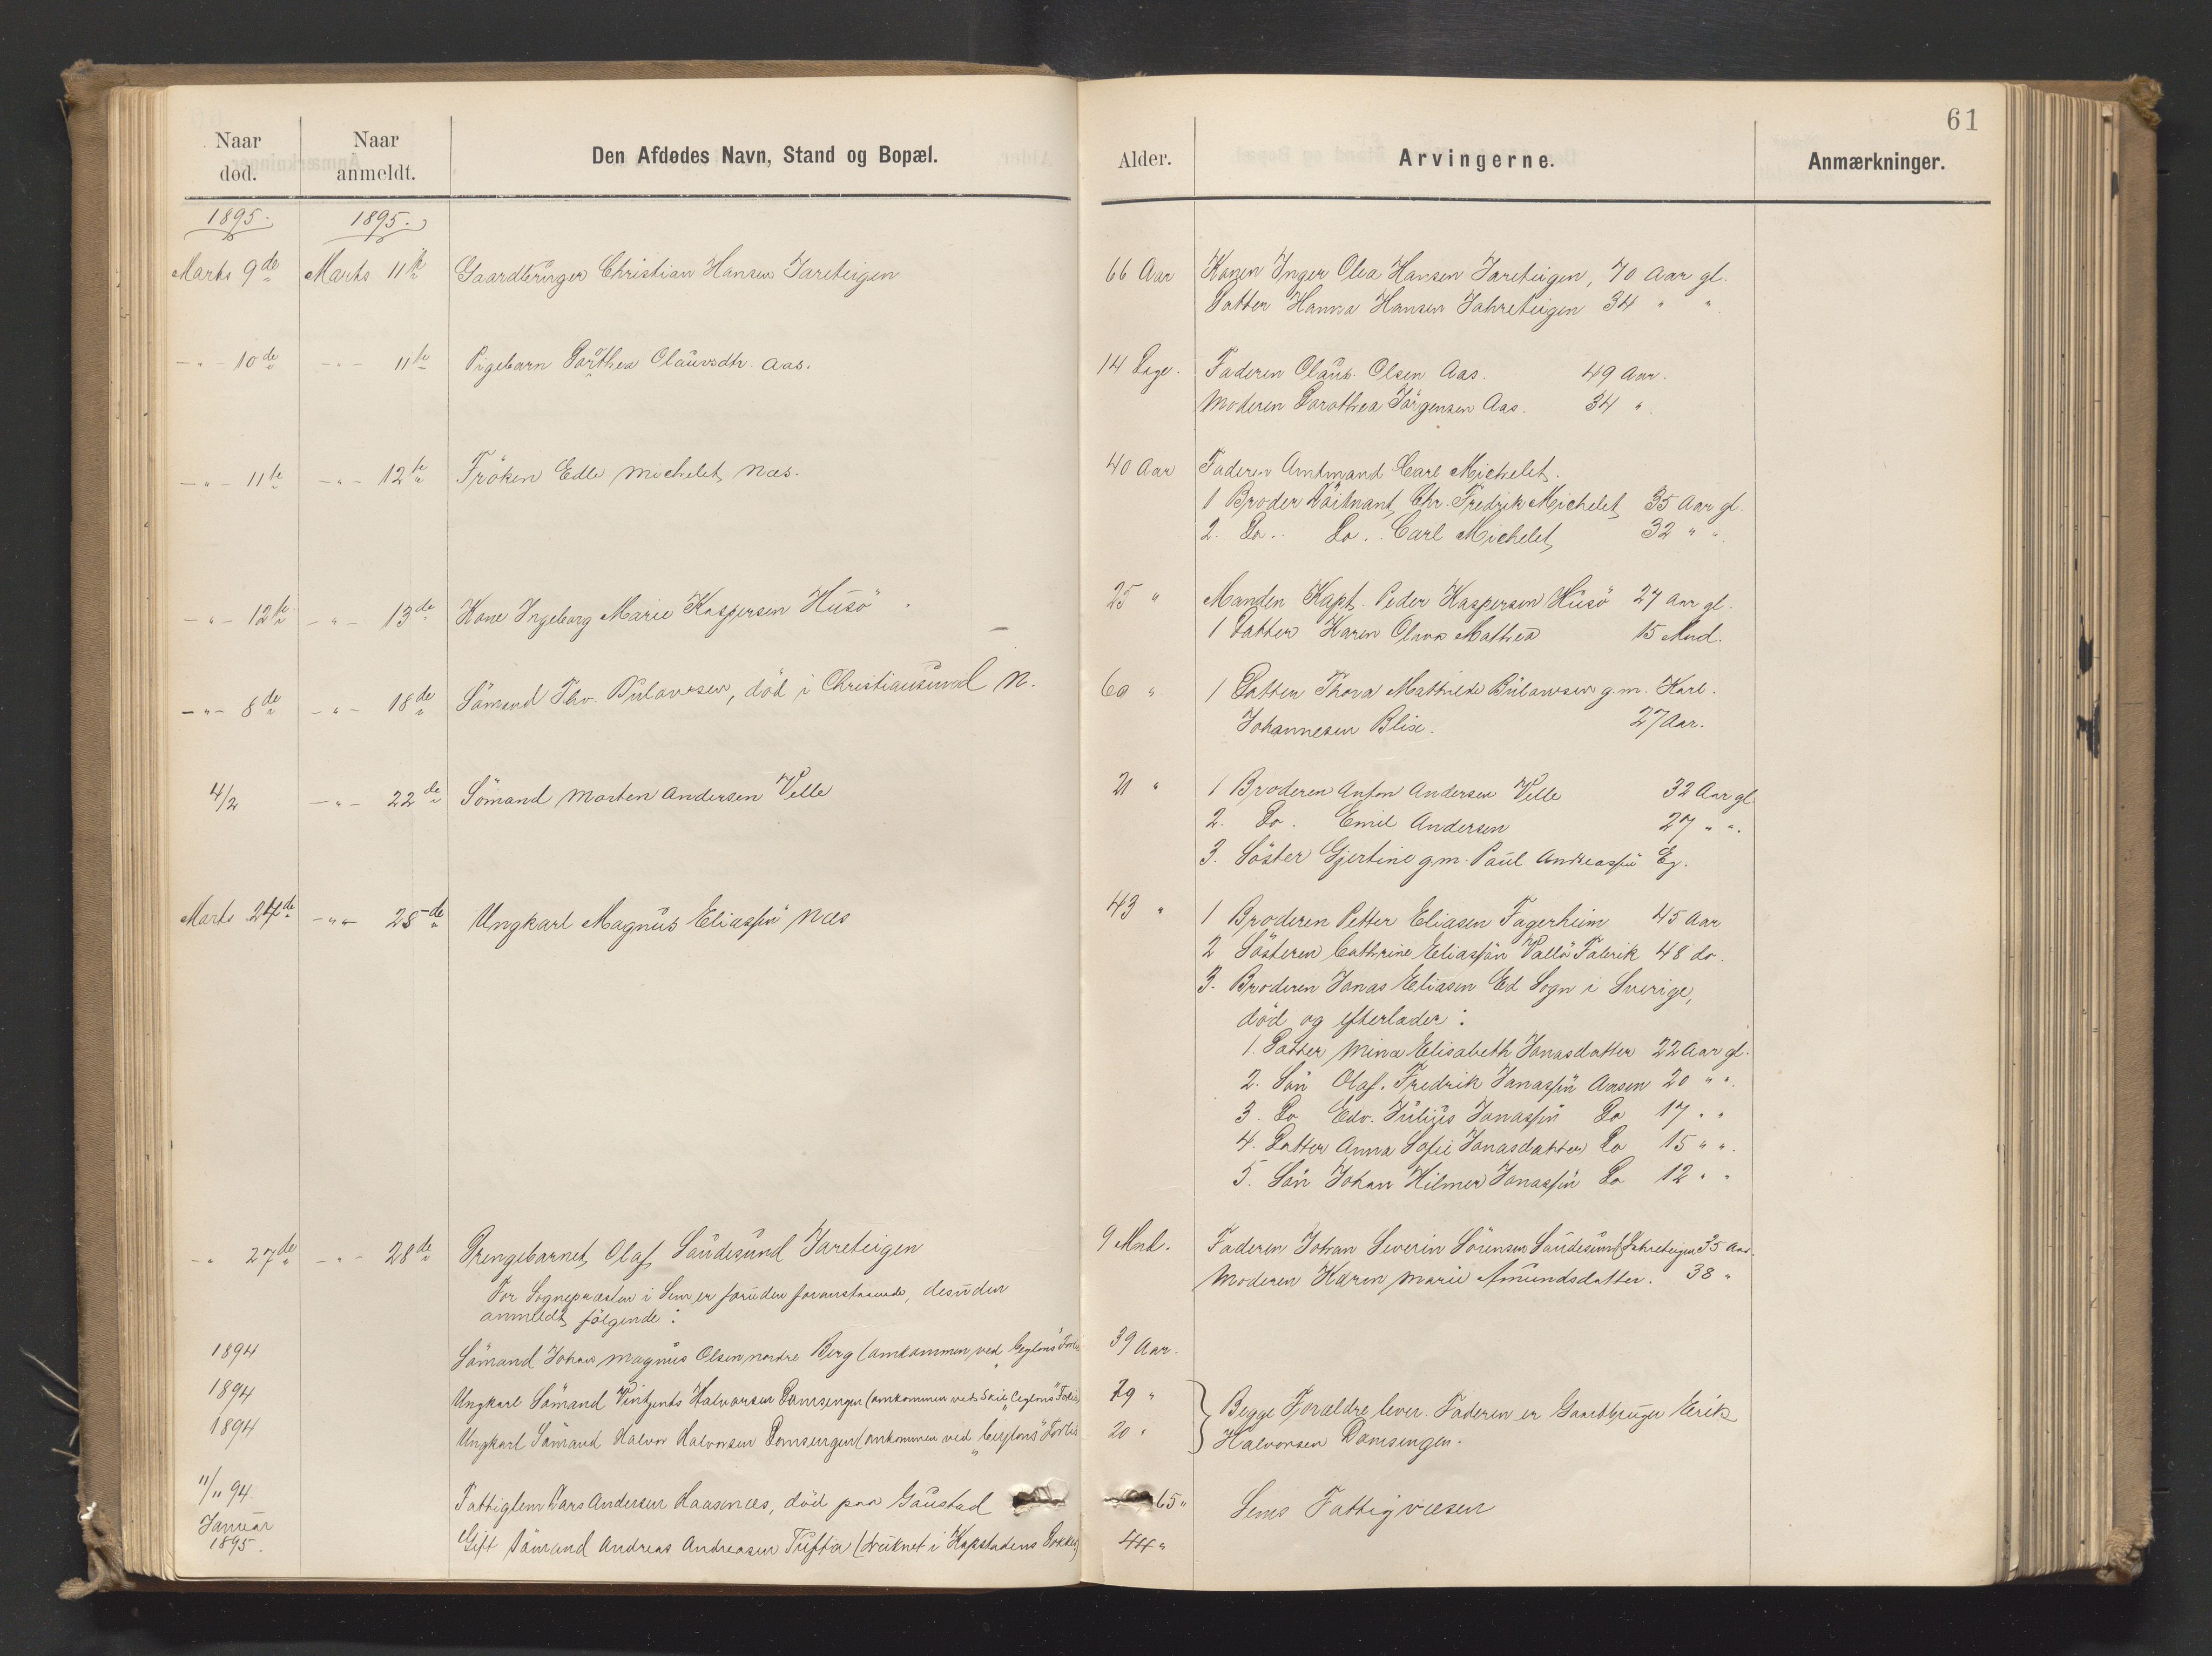 61
Naar død. Naar anmeldt. Den Afdødes Navn, Stand og Bopæl. Alder. Arvingerne. Anmærkninger.
1895. 1895.
Marts 9de Marts 11te Gaardbruger Christian Hansen Jareteigen 66 Aar Konen Inger Olea Hansen Jareteigen, 70 Aar gl.
Datter Hanna Hansen Jahreteigen 34 " "
- " - 10de - " - 11te Pigebarn Dorthea Olausdtr. Aas. 14 Dage. Faderen Olaus Olsen Aas. 49 Aar.
Moderen Dorothea Jörgensen Aas. 34 "
- " - 11te - " - 12te Fröken Edle Michelet, Næs. 40 Aar Faderen Amtmand Carl Michelet.
1 Broder Löitnant, Chr. Fredrik Michelet, 35 Aar gl.
2. Do. Do. Carl Michelet, 32 " "
- " - 12te - " - 13de Kone Ingeborg Marie Kaspersen Husö 25 " Manden Kapt. Peder Kaspersen Husö 27 Aar gl.
1 Datter Karen Olava Mathea 15 Mnd.
- " - 8de - " - 18de Sömand Thv. Bülowsen, död i Christiansund N. 60 " 1 Datter Thora Mathilde Bülowsen g.m. Karl.
Johannesen Blix. 27 Aar.
4/2 - " - 22de Sömand Morten Andersen Velle 21 " 1 Broderen Anton Andersen Velle 32 Aar gl.
2. Do. Emil Andersen 27 " "
3. Söster Gjertine g.m. Paul Andreassen Eg.
Marts 24de - " - 25de Ungkarl Magnus Eliassen Næs 43 " 1 Broderen Petter Eliasen Fagerheim 45 Aar
2 Systeren Cathrine Eliassön Vallö Fabrik 48 do.
3. Broderen Jonas Eliasen Ed Sogn i Sverige,
död og efterlader:
1. Datter Mina Elisabeth Jonasdatter 22 Aar gl.
2. Sön Olaf. Fredrik Jonassön 20 " "
3. Do Edv. Julius Jonassön Do 17 " "
4. Datter Anna Sofie Jonasdatter Do 15 " "
5. Sön Johan Hilmer Jonassön Do 12 " "
- " 27de - " - 28de Drengebarnet, Olaf Sandesund Jareteigen 9 Mnd. Faderen Johan Severin Sörensen Sandesund Jahreteigen 35 Aar.
Moderen Karen Marie Amundsdatter. 38 "
For Sognepræsten i Sem er foruden foranstaaende, desuden
anmeldt, fölgende:
1894 Sömand Johan Magnus Olsen nordre Berg (omkommen, ved "Ceylons" Forlis 39 Aar.
1894 Ungkarl Sömand Vintzents Halvorsen Damsengen (omkommen ved Skib "Ceylons" Forlis) 29 "
1894 Ungkarl Sömand Halvor Halvorsen Damsengen (omkommen ved "Ceylons" Forlis 20 " Begge Forældre lever. Faderen er Gaardbruger Erik
Halvorsen Damsengen.
11/11 94. Fattiglem Lars Andersen Haasenæs, död paa Gaustad 65 " Sems Fattigvæsen
Januar
1895. Gift Sömand Andreas Andreasen Tufta (druknet i Kapstadens Dokker) 44 "